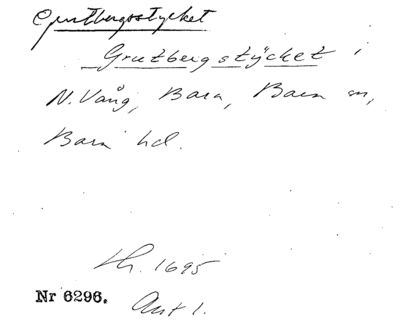 Grutbergsstycket
Grutbergstÿcket i
N. Vång, Bara, Bara sn,
Bara hd.
Lh. 1695
Nr 6296. Ant 1.